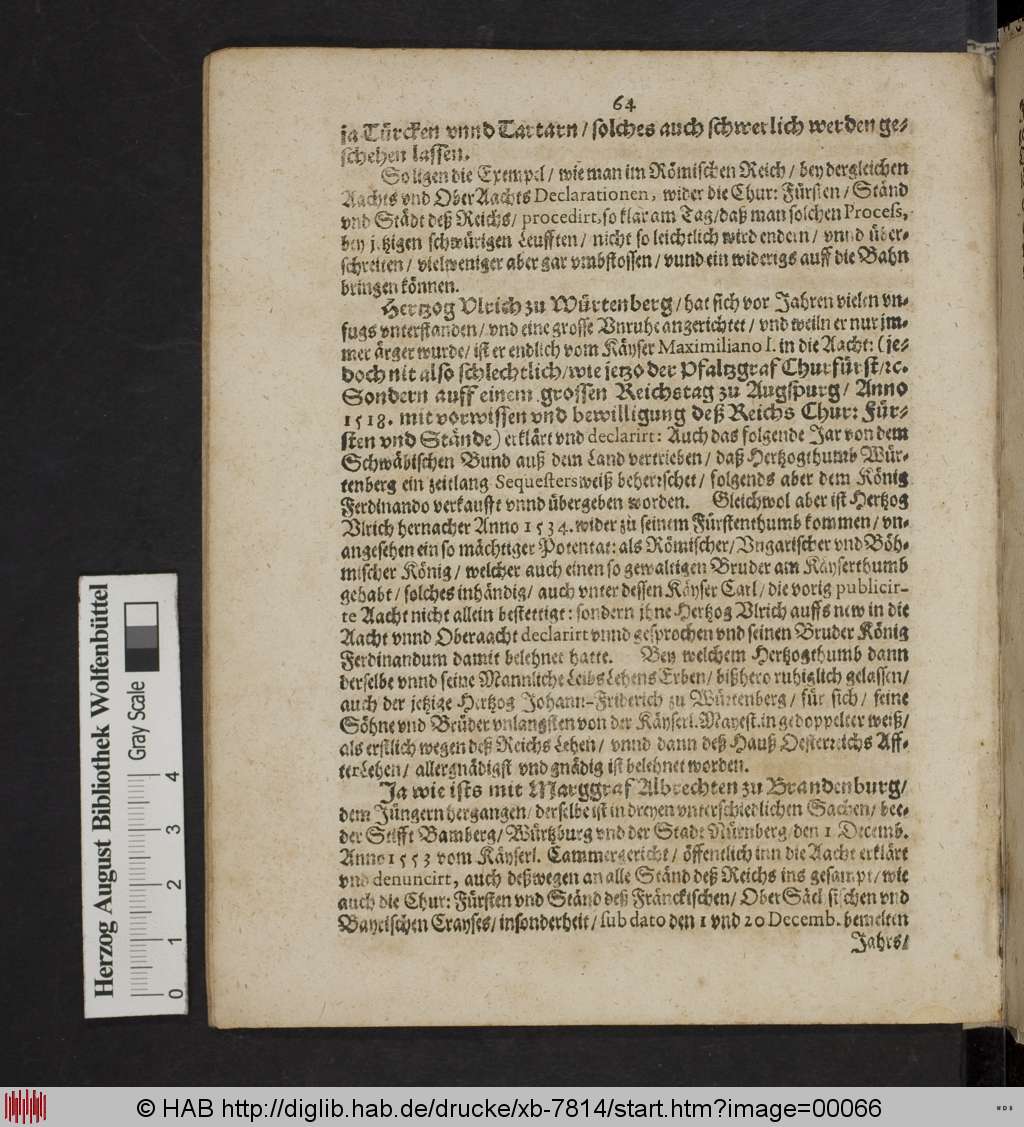 64
ja Türcken vnnd Tartarn / solches auch schwerlich werden ge-
schehen lassen.
So ligen die Exempel / wie man im Römischen Reich / bey dergleichen
Aachts vnd OberAachts Declarationen, wider die Chur: Fürsten / Ständ
vnd Städt deß Reichs / procedirt, so klar am Tag / daß man solchen Process,
bey jetzigen schwürigen Leufften / nicht so leichtlich wird endern / vnnd über-
schreiten / vielweniger aber gar vmbstossen / vnnd ein widerigs auff die Bahn
bringen können.
Hertzog Vlrich zu Würtenberg / hat sich vor Jahren vielen vn-
fugs vnterstanden / vnd eine grosse Vnruhe angerichtet / vnd weiln er nur jm-
mer ärger wurde / ist er endlich vom Käyser Maximiliano I. in die Aacht: (je-
doch nit also schlechtlich / wie jetzo der Pfaltzgraf Churfürst / ꝛc.
Sondern auff einem grossen Reichstag zu Augspurg / Anno
1518. mit vorwissen vnd bewilligung deß Reichs Chur: Für-
sten vnd Stände) erklärt vnd declarirt: Auch das folgende Jar von dem
Schwäbischen Bund auß dem Land vertrieben / daß Hertzogthumb Wür-
tenberg ein zeitlang Sequestersweiß beherrschet / folgends aber dem König
Ferdinando verkaufft vnnd übergeben worden. Gleichwol aber ist Hertzog
Vlrich hernacher Anno 1534. wider zu seinem Fürstenthumb kommen / vn-
angesehen ein so mächtiger Potentat: als Römischer / Vngarischer vnd Böh-
mischer König / welcher auch einen so gewaltigen Bruder am Käyserthumb
gehabt / solches inhändig / auch vnter dessen Käyser Carl / die vorig publicir-
te Aacht nicht allein bestettigt: sondern jhne Hertzog Vlrich auffs new in die
Aacht vnnd Oberaacht declarirt vnnd gesprochen vnd seinen Bruder König
Ferdinandum damit belehnet hatte. Bey welchem Hertzogthumb dann
derselbe vnnd seine Mannliche Leibs Lehens Erben / bißhero ruhiglich gelassen /
auch der jetzige Hertzog Johann-Friderich zu Würtenberg / für sich / seine
Söhne vnd Brüder vnlangsten von der Käyserl. Mayest. in gedoppelter weiß /
als erstlich wegen deß Reichs Lehen / vnnd dann deß Hauß Oesterreichs Aff-
terLehen / allergnädigst vnd gnädig ist belehnet worden.
Ja wie ists mit Marggraf Albrechten zu Brandenburg /
dem Jüngern hergangen / derselbe ist in dreyen vnterschiedlichen Sachen / bee-
der Stifft Bamberg / Würtzburg vnd der Stadt Nürnberg / den 1 Decemb.
Anno 1553 vom Käyserl. Cammergericht / öffentlich inn die Aacht erklärt
vnd denuncirt, auch deßwegen an alle Ständ deß Reichs ins gesampt / wie
auch die Chur: Fürsten vnd Ständ deß Fränckischen / Ober Sächsischen vnd
Bayrischen Crayses / insonderheit / sub dato den 1 vnd 20 Decemb. bemelten
Jahrs /
Herzog August Bibliothek Wolfenbüttel
Gray Scale
0 1 2 3 4
© HAB http://diglib.hab.de/drucke/xb-7814/start.htm?image=00066
WDB